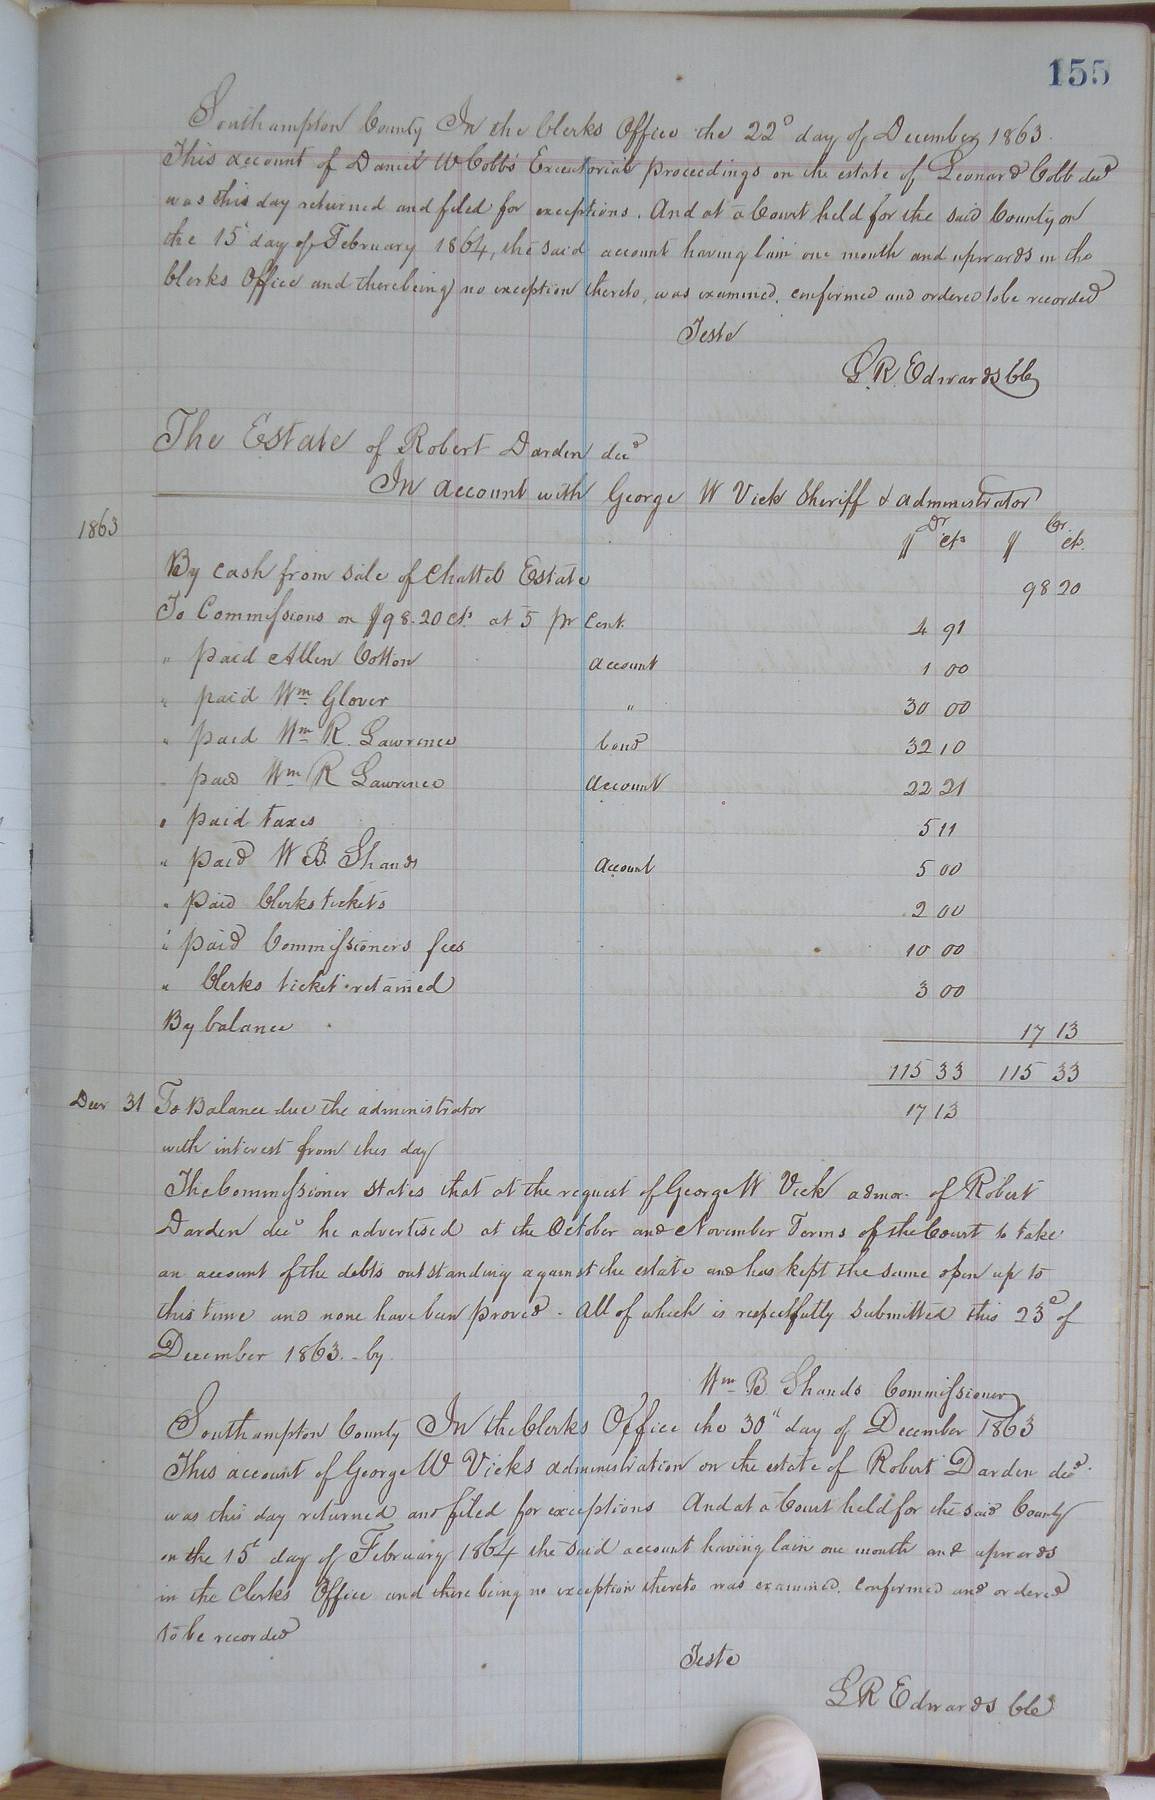 155
Southampton County In the Clerks Office the 22d day of December 1863.
This account of Daniel W Cobbs Executorial proceedings on the estate of Leonard Cobb decd
was this day returned and filed for exceptions. And at a Court held for the said County on
the 15 day of February 1864, the said account having lain one month and upwards in the
Clerks Office and there being no exception thereto, was examined, confirmed and ordered to be recorded
Teste
L. R. Edwards Clk
The Estate of Robert Darden decd
In account with George W Vick Sheriff & administrator
1863 Dr Cr
$ cts $ cts.
By cash from sale of Chattel Estate 98 20
To Commissions on $98.20 cts. at 5 pr Cent. 4 91
" paid Allen Cotton account 1 00
" paid Wm. Glover " 30 00
" paid Wm R. Lawrence bond 32 10
" paid Wm R Lawrence account 22 21
" paid taxes 5 11
" paid W B. Shands account 5 00
" paid Clerks tickets 2 00
" paid Commissioners fees 10 00
" Clerks ticket retained 3 00
By balance 17 13
115 33 115 33
Decr 31 To Balance due the administrator 17 13
with interest from this day
The Commissioner states that at the request of George W Vick admor. of Robert
Darden decd he advertised at the October and November Terms of the Court to take
an account of the debts outstanding against the estate and has kept the same open up to
this time and none have been proved - All of which is respectfully submitted this 23d of
December 1863. - by
Wm B Shands Commissioner
Southampton County In the Clerks Office the 30" day of December 1863
This account of George W Vicks administration on the estate of Robert Darden decd.
was this day returned and filed for exceptions And at a Court held for the said County
on the 15t day of February 1864 the said account having lain one month and upwards
in the Clerks Office and there being no exception thereto was examined, confirmed and ordered
to be recorded
Teste
L R Edwards Clk